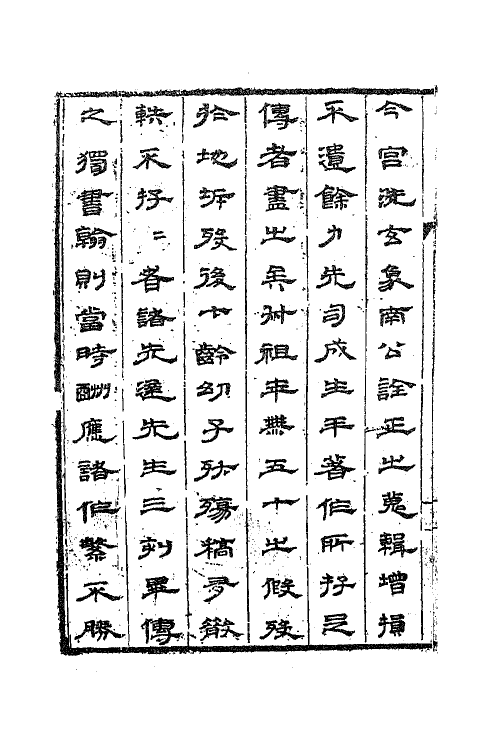 今宫洗玄象南公詮正之蒐輯增損
不遺餘力先司成生平著作所存已
傳者盡之矣叔祖年無五十之假歿
於地坼歿後七齡幼子殀殤稿多散
軼不存二者諸先達先生三刻單傳
之獨書翰則當時酬應諸作繁不勝